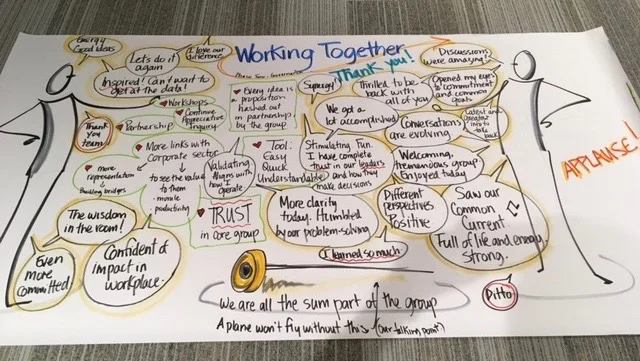 Energy
Good ideas
Let's do it
again
I love our
difference
Inspired! Can't wait to
get at the data!
Working Together
Thank you!
Synergy!
Thrilled to be
back with
all of you
Discussions
were amazing!
Opened my eyes
to commitment
and common
goals
Latest and
greatest
info to
take back
APPLAUSE!
Thank
you
team
Workshops
Continue
Appreciative
Inquiry
Partnership
Every idea is
a proposition
hashed out
in partnership
by the group
We got a
lot accomplished
Conversations
are evolving
More links with
corporate sector
to see the value
to them
- morale
productivity
more
representation
Building bridges
Validating
Aligns with
how we
operate
Tool.
Easy
Quick
Understandable
Stimulating. Fun.
I have complete
trust in our leaders
and how they
make decisions
Welcoming,
tremendous group.
Enjoyed today
The wisdom
in the room!
TRUST
in core group
More clarity
today. Humbled
by our problem-solving
Different
Perspectives
Positive
Saw our
Common
Current
Full of life and energy.
Strong.
Even
more
committed
Confident of
impact in
workplace.
I learned so much
Ditto
We are all the sum part of the group
A plane won't fly without this (our talking point)